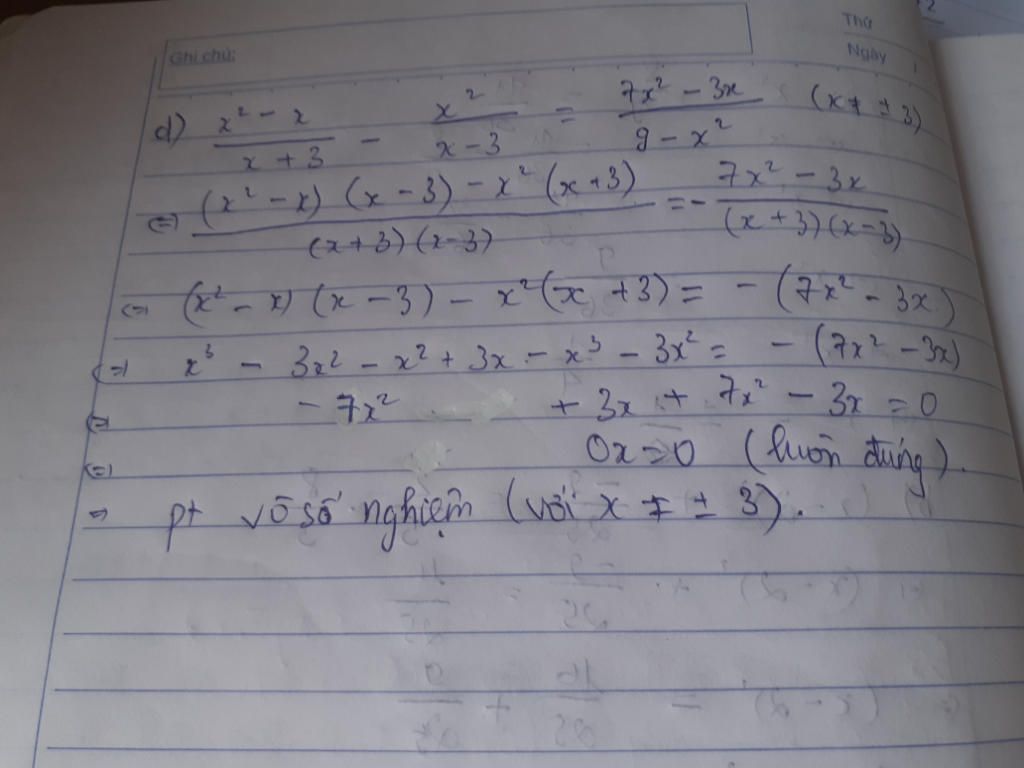 Thứ
Ghi chú:
Ngày
d) (x² - x)/(x + 3) - x²/(x - 3) = (7x² - 3x)/(9 - x²) (x ≠ ± 3)
⇔ ((x² - x) (x - 3) - x² (x + 3))/((x + 3) (x - 3)) = - (7x² - 3x)/((x + 3) (x - 3))
⇔ (x² - x) (x - 3) - x² (x + 3) = - (7x² - 3x)
⇔ x³ - 3x² - x² + 3x - x³ - 3x² = - (7x² - 3x)
⇔ - 7x² + 3x + 7x² - 3x = 0
⇔ 0x = 0 (luôn đúng).
⇒ pt vô số nghiệm (với x ≠ ± 3).